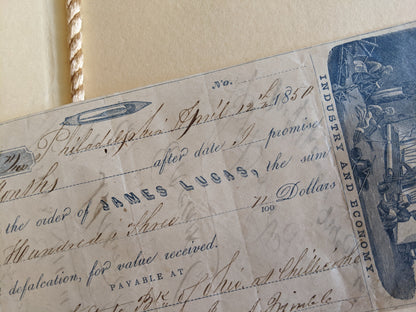 No.
Philadelphia April 12th 1850
after date I promise
the order of JAMES LUCAS, the sum
Hundred & Three /100 Dollars
defalcation, for value received.
PAYABLE AT
Bk of Ohio at Chillicothe
INDUSTRY AND ECONOMY